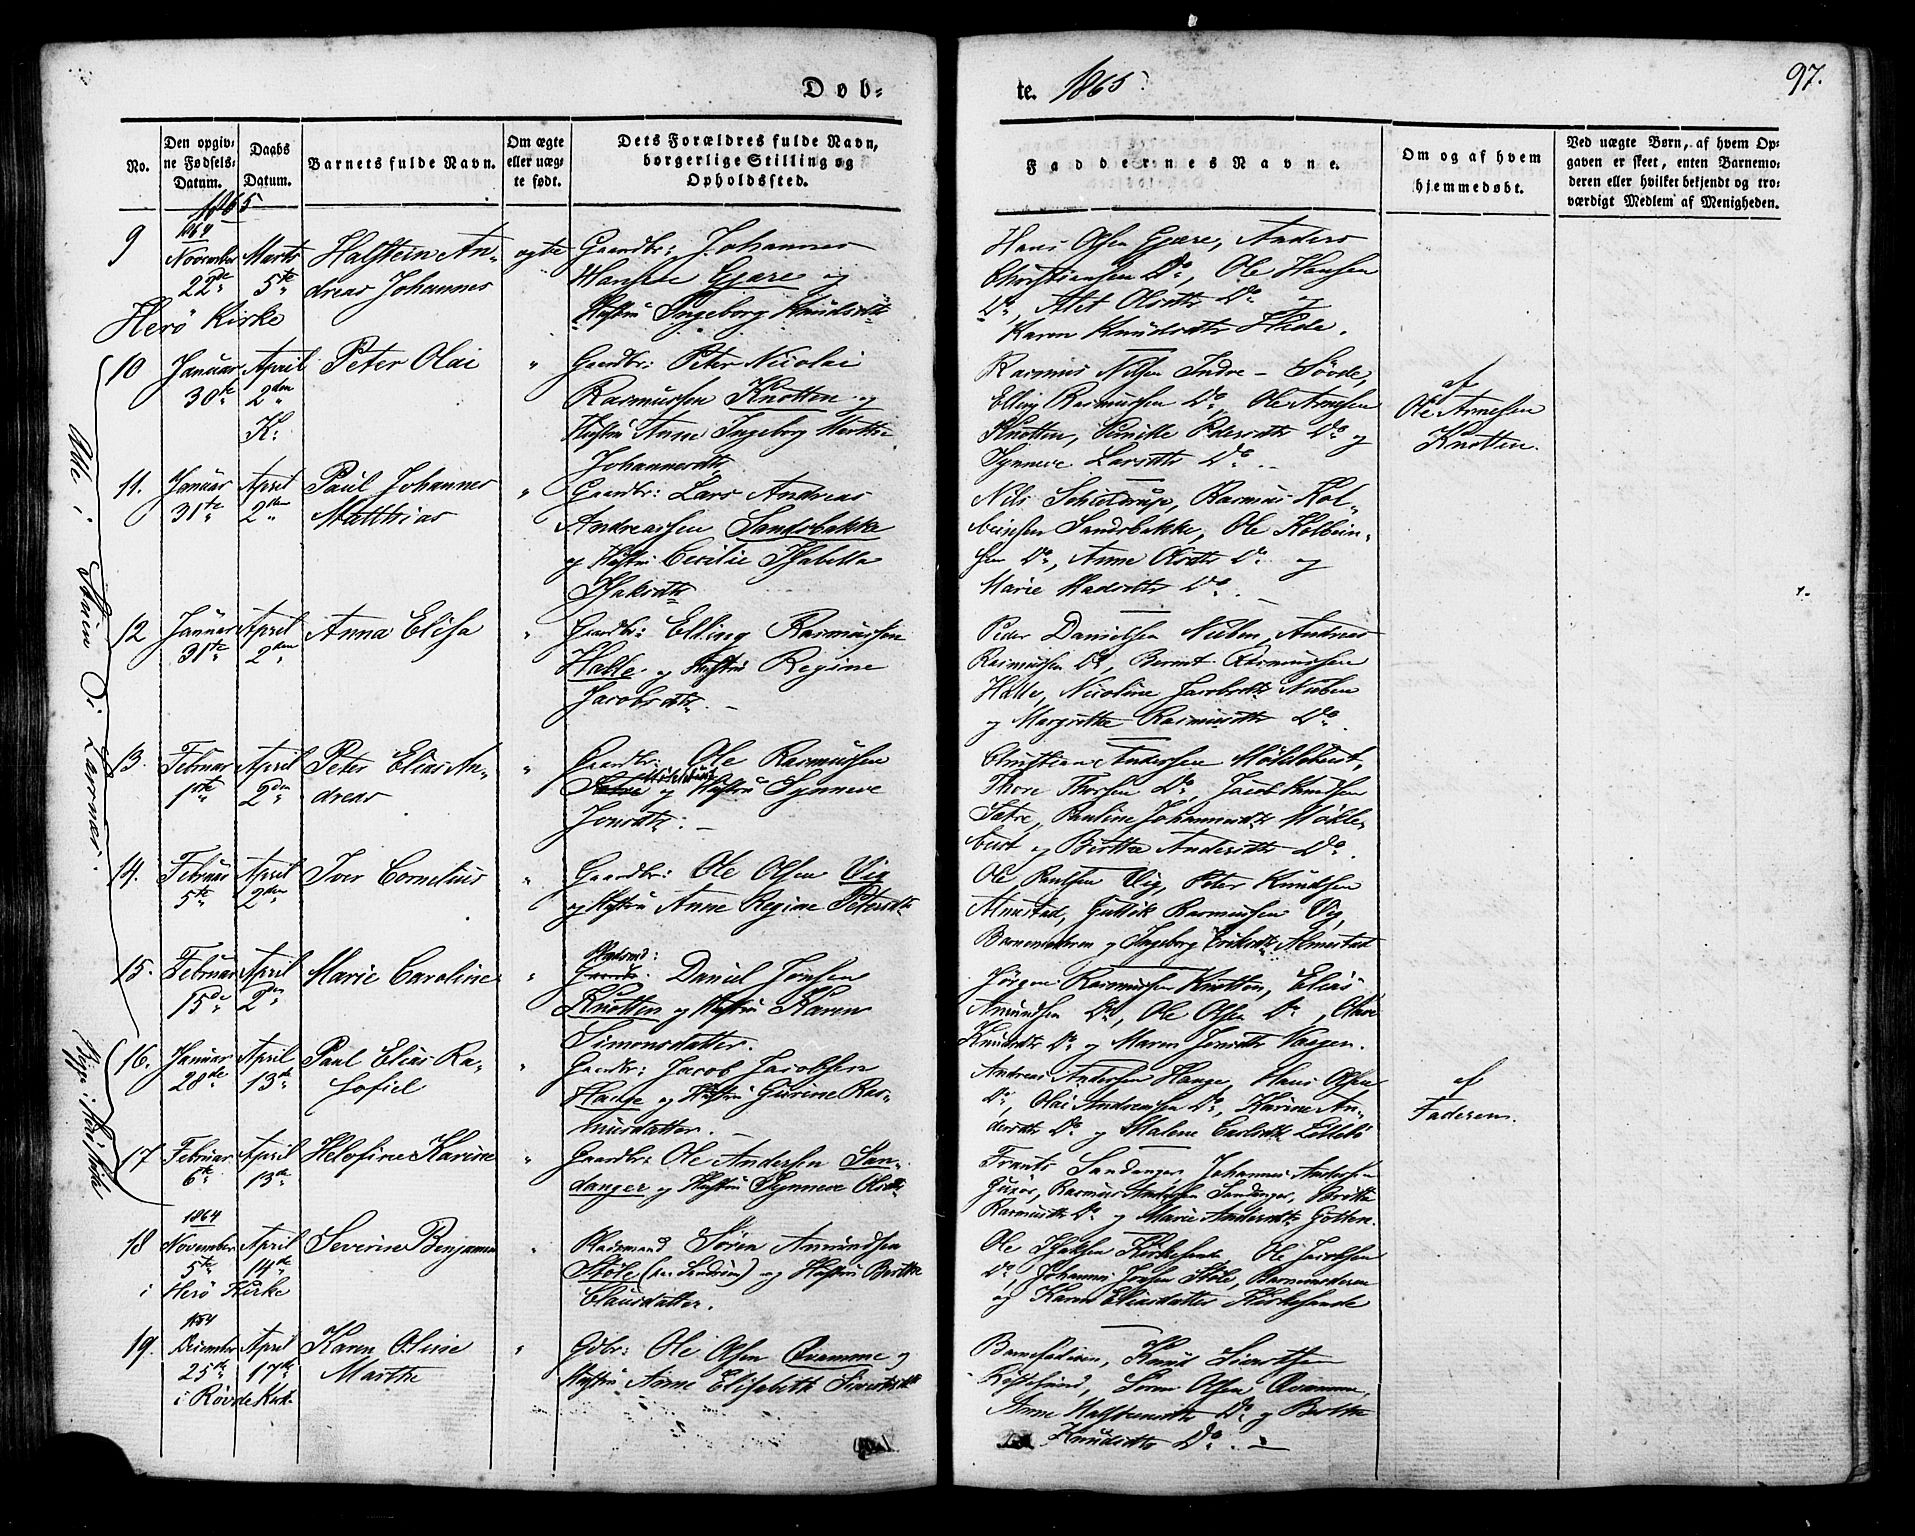 Døb-
te. 1865.
97.
No.
Den opgiv-
ne Fødsels-
Datum.
Daabs
Datum.
Barnets fulde Navn.
Om ægte
eller uæg-
te født.
Dets Forældres fulde Navn,
borgerlige Stilling og
Opholdssted.
Faddernes Navne.
Om og af hvem
hjemmedøbt.
Ved uægte Børn, af hvem Op-
gaven er skeet, enten Barnemo-
deren eller hvilket bekjendt og tro-
værdigt Medlem af Menigheden.
1865
9
1864
November
22de
Marts
5te
Halstein An-
dreas Johannes
ægte
Gaardbr: Johannes
Hansen Gjære og
Hustru Ingeborg Knudsdtr
Herø Kirke
Hans Olsen Gjære, Anders
Christiansen Do, Ole Hansen
Do, Alet Olsdtr Do og
Karen Knudsdtr
10
Januar
30te
April
2den
K:
Peter Olai
"
Gaardbr: Peter Nicolai
Rasmussen Knotten og
Hustru Anne Ingeborg Marthe
Johannesdtr
Rasmus Nilsen Indre-Søvde,
Elling Rasmussen Do, Ole Arnesen
Knotten, Pernille Pedersdtr Do og
Synneve Larsdtr Do.
af
Ole Arnesen
Knotten.
11.
Januar
31te
April
2den
Paul Johannes
Matthias
"
Gaardbr: Lars Andreas
Andreassen Sandsbakke
og Hustru Cecilie Isabella
Isaksdtr
Nils Schieldrup, Rasmus Kol-
beinsen Sandsbakke, Ole Kolbein-
sen Do, Anne Olsdtr Do og
Marie Madsdtr Do.
12
Januar
31te
April
2den
Anna Elisa
"
Gaardbr: Elling Rasmussen
Halle og Hustru Regine
Jacobsdtr.
Peder Danielsen Nieben, Andreas
Rasmussen Do, Bernt Rasmussen
Halle, Nicoline Jacobsdtr Nieben
og Margrethe Rasmusdtr Do.
13.
Februar
1ste
April
2den
Peter Elias An-
dreas
"
Gaardbr: Ole Rasmussen
Sætre Myklebust og Hustru Synneve
Jonsdtr:
Christian Andersen Møklebust,
Thore Thorsen Do, Jacob Knudsen
Sætre, Pauline Johannesdtr Møkle-
bust og Berthe Andersdtr Do.
14.
Februar
5te
April
2den
Iver Cornelius
"
Gaardbr: Ole Olsen Vig
og Hustru Anne Regine Petersdtr
Ole Paulsen Vig, Peter Knudsen
Almestad, Guttik Rasmussen Vig,
Barnemoderen og Ingeborg Eriksdtr Almestad
15.
Februar
15de
April
2den
Marie Caroline
"
Pladsmd:
Gaardbr: Daniel Jonsen
Knotten og Hustru Karen
Simonsdatter.
Jørgen Rasmussen Knotten, Elias
Amundsen Do, Ole Olsen Do, Oline
Knudsdtr Do og Maren Jonsdtr Vaagen.
Alle i Volden
16.
Januar
28de
April
13de
Paul Elias Ra-
sofiel
"
Gaardbr: Jacob Jacobsen
Hauge og Hustru Gurine Ras-
musdatter.
Andreas Andersen Hauge, Hans Olsen
Do, Olai Andreassen Do, Karine An-
dersdtr Do og Malene Carlsdtr Lillebø
af
Faderen.
17
Februar
6te
April
13de
Helofine Karine
"
Gaardbr: Ole Andersen San-
danger og Hustru Synneve Olsdtr
Frants Sandanger, Johannes Andersen
Gurøs, Rasmus Andersen Sandanger, Berthe
Rasmusdtr Do og Marie Andersdtr Gotteve.
18
1864
November
5te
April
14de
Severine Benjamine
"
Pladsmand Søren Amundsen
Støle og Hustru Berthe
Clausdatter.
i Herø Kirke
Ole Isaksen Kirkesande, Ole Jacobsen
Do, Johannes Jonsen Støle, Barnemoderen
og Karen Eliasdatter Kirkesande
19.
1864
December
25de
April
17de
Karen Oline
Marthe
"
Gdbr: Ole Olsen Qvamme og
Hustru Anne Elisabeth Sivertsdtr
i Røvde Kirk.
Barnefaderen, Knud Sivertsen
Søren Olsen Qvamme,
Anne Do og Berthe
Knudsdtr Do.